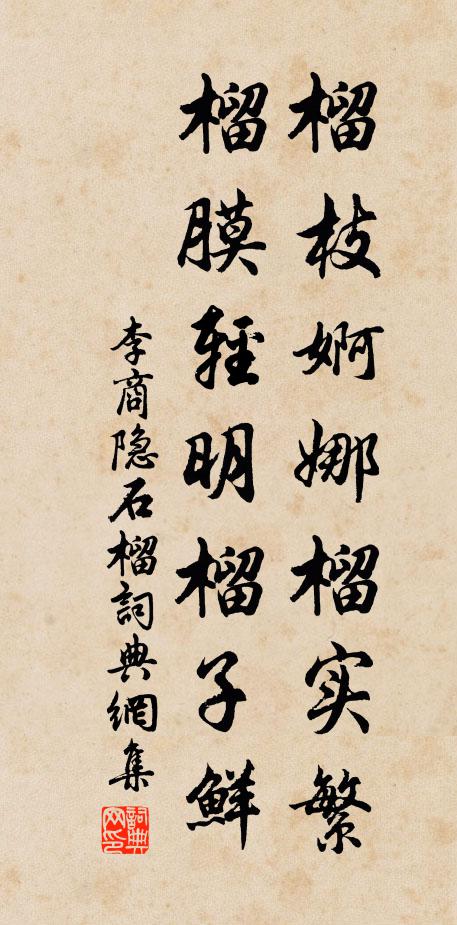 榴枝婀娜榴实繁
榴膜輕明榴子鮮
李商隐石榴詞典網集
詞典网印